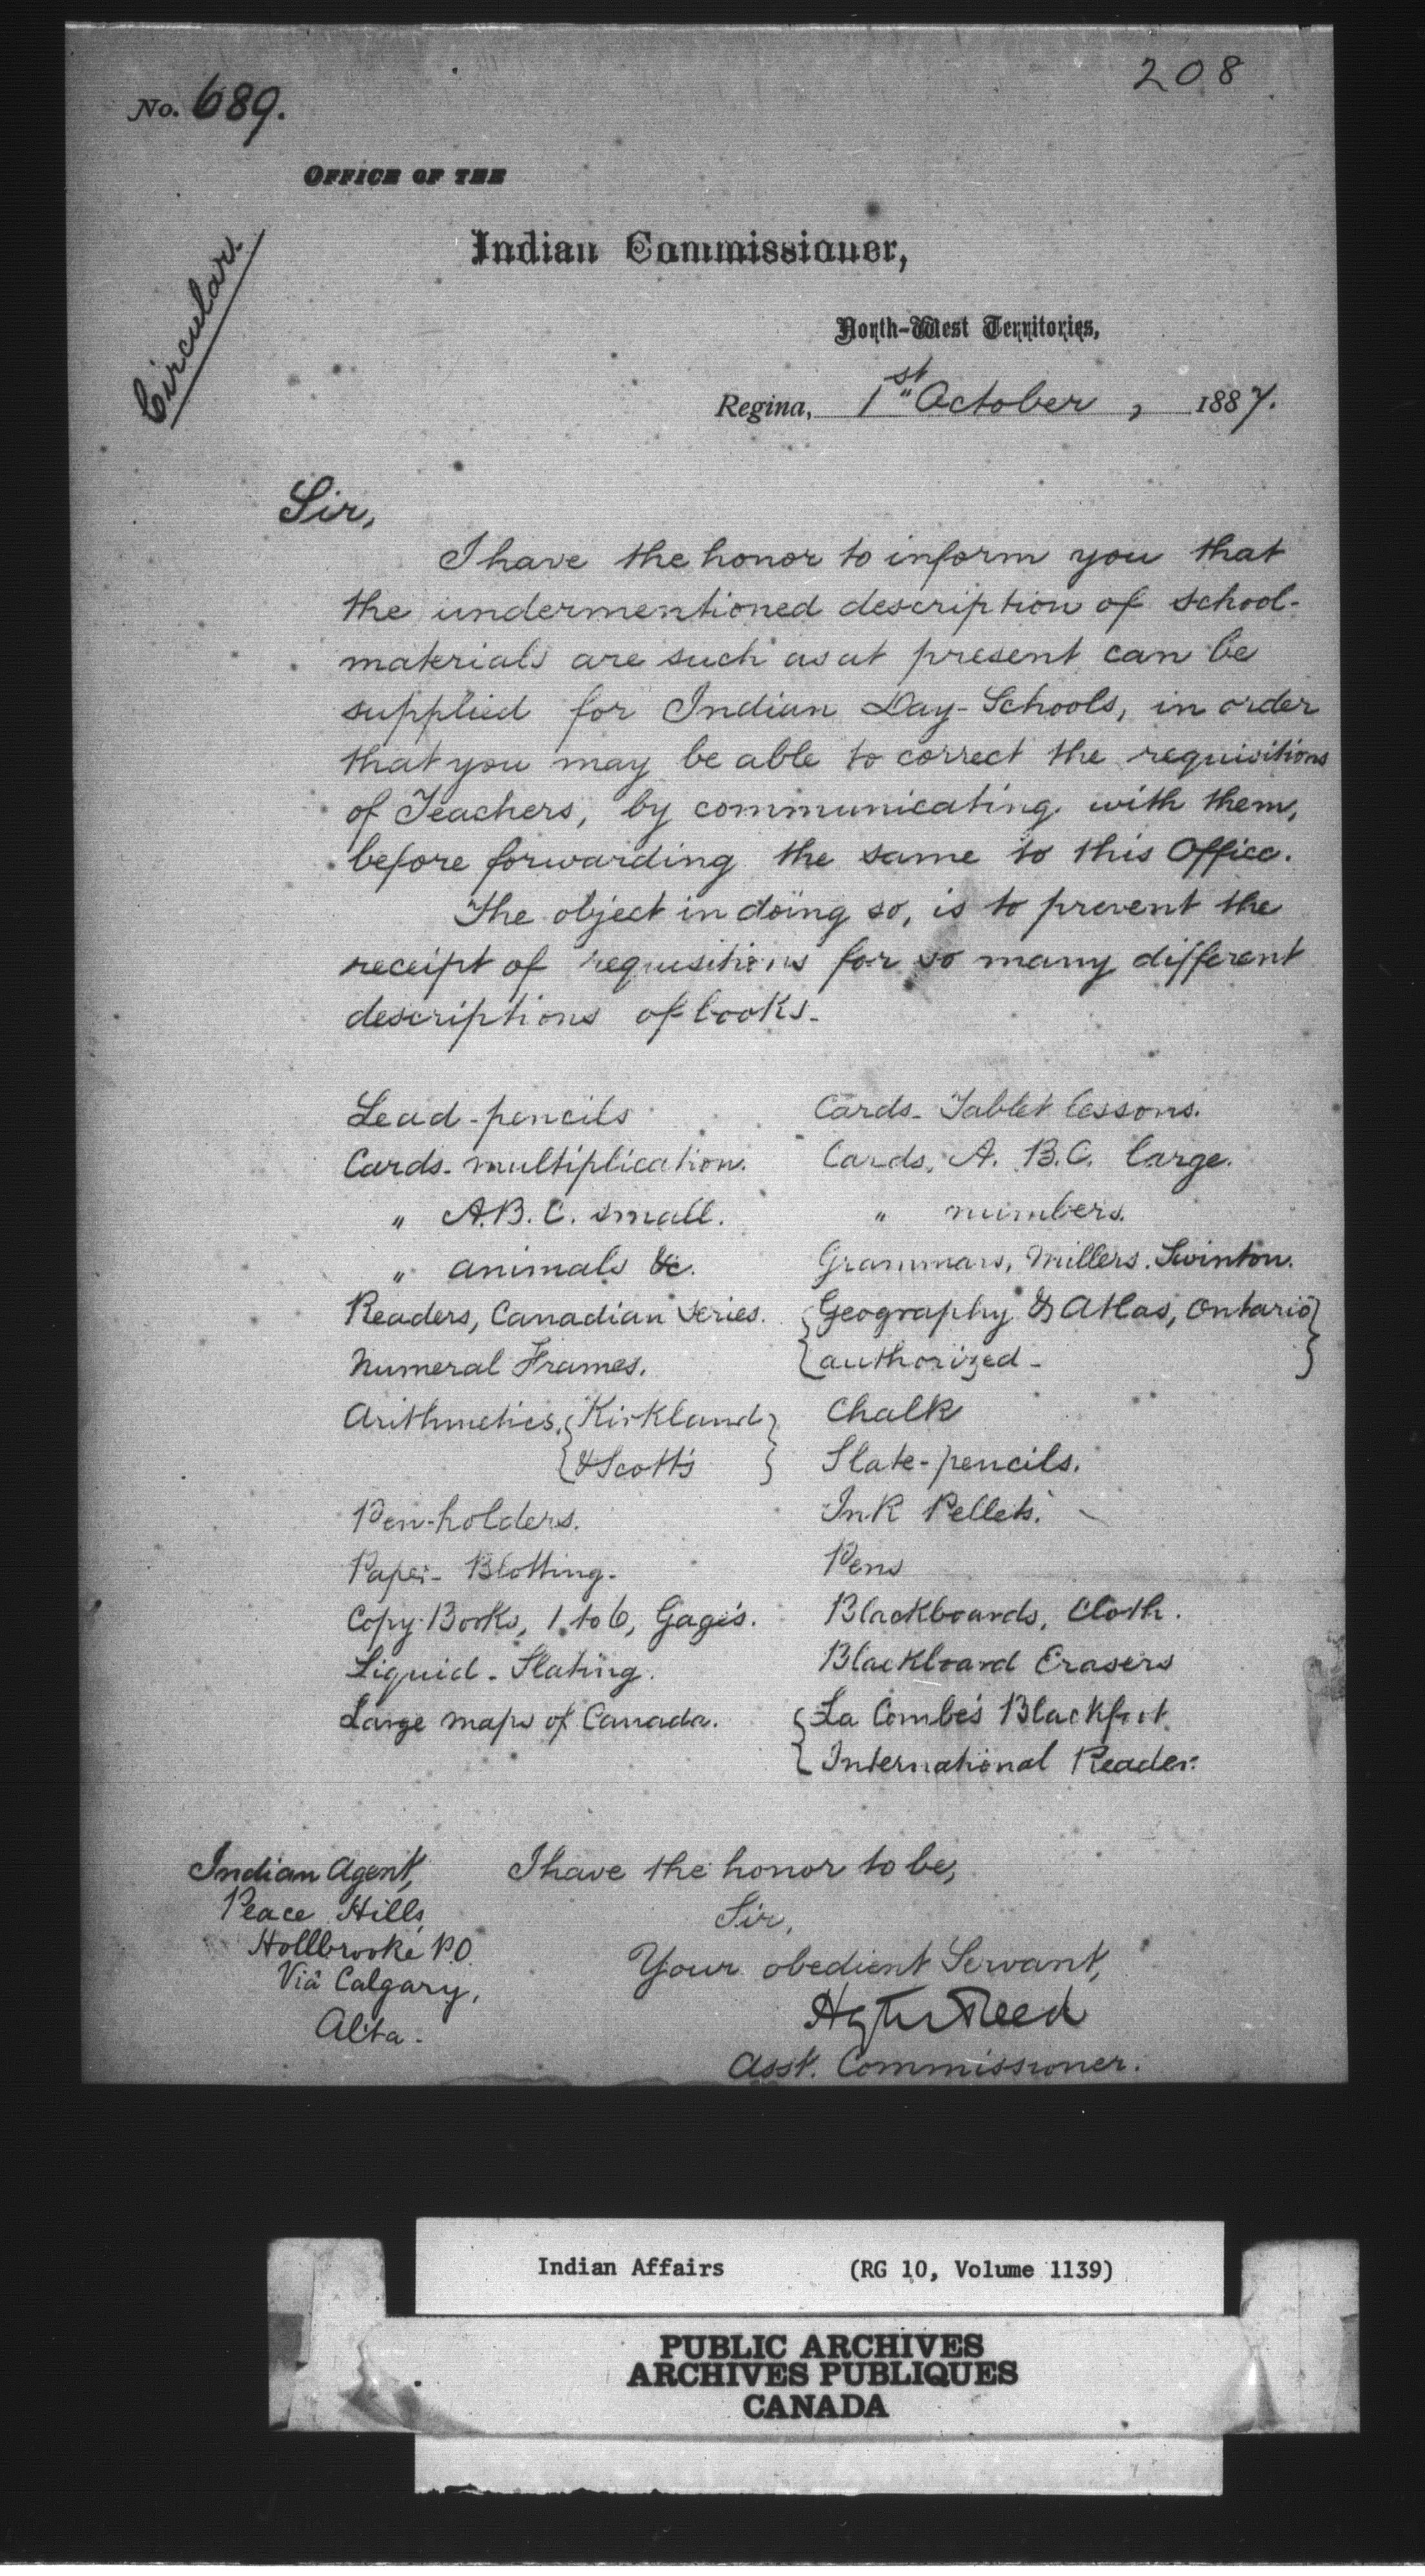 208
No. 689.
OFFICE OF THE
Indian Commissioner,
Circular.
North-West Territories,
Regina, 1st October, 1887.
Sir,
I have the honor to inform you that
the undermentioned description of school-
materials are such as at present can be
supplied for Indian Day-Schools, in order
that you may be able to correct the requisitions
of Teachers, by communicating with them,
before forwarding the same to this Office.
The object in doing so, is to prevent the
receipt of requisitions for so many different
descriptions of books.
Lead-pencils
Cards. multiplication.
" A.B.C. small.
" animals &c.
Readers, Canadian Series.
Numeral Frames.
Arithmetics, {Kirkland}
{& Scott's}
Pen-holders.
Paper- Blotting.
Copy-Books, 1 to 6, Gage's.
Liquid-Slating.
Large maps of Canada.
Cards- Tablet lessons.
Cards, A. B.C. large.
" numbers.
Grammars, Millers. Swinton.
{Geography & Atlas, Ontario}
{authorized-}
Chalk
Slate-pencils.
Ink Pellets.
Pens
Blackboards, Cloth.
Blackboard Erasers
{La Combe's Blackfoot
{International Reader.
Indian Agent,
Peace Hills,
Hollbrooke P.O.
Via Calgary,
Alta.
I have the honor to be,
Sir,
Your obedient Servant,
Hayter Reed
Asst. Commissioner.
Indian Affairs (RG 10, Volume 1139)
PUBLIC ARCHIVES
ARCHIVES PUBLIQUES
CANADA